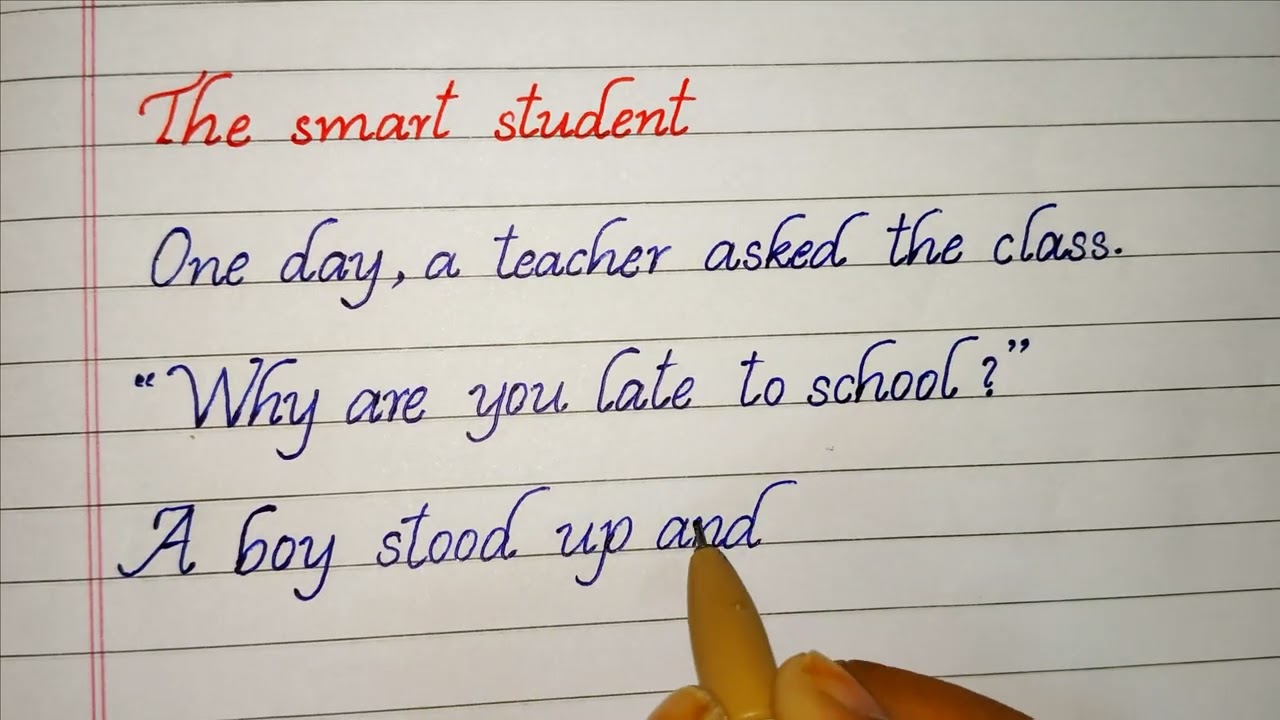 The smart student
One day, a teacher asked the class.
“Why are you late to school?”
A boy stood up and